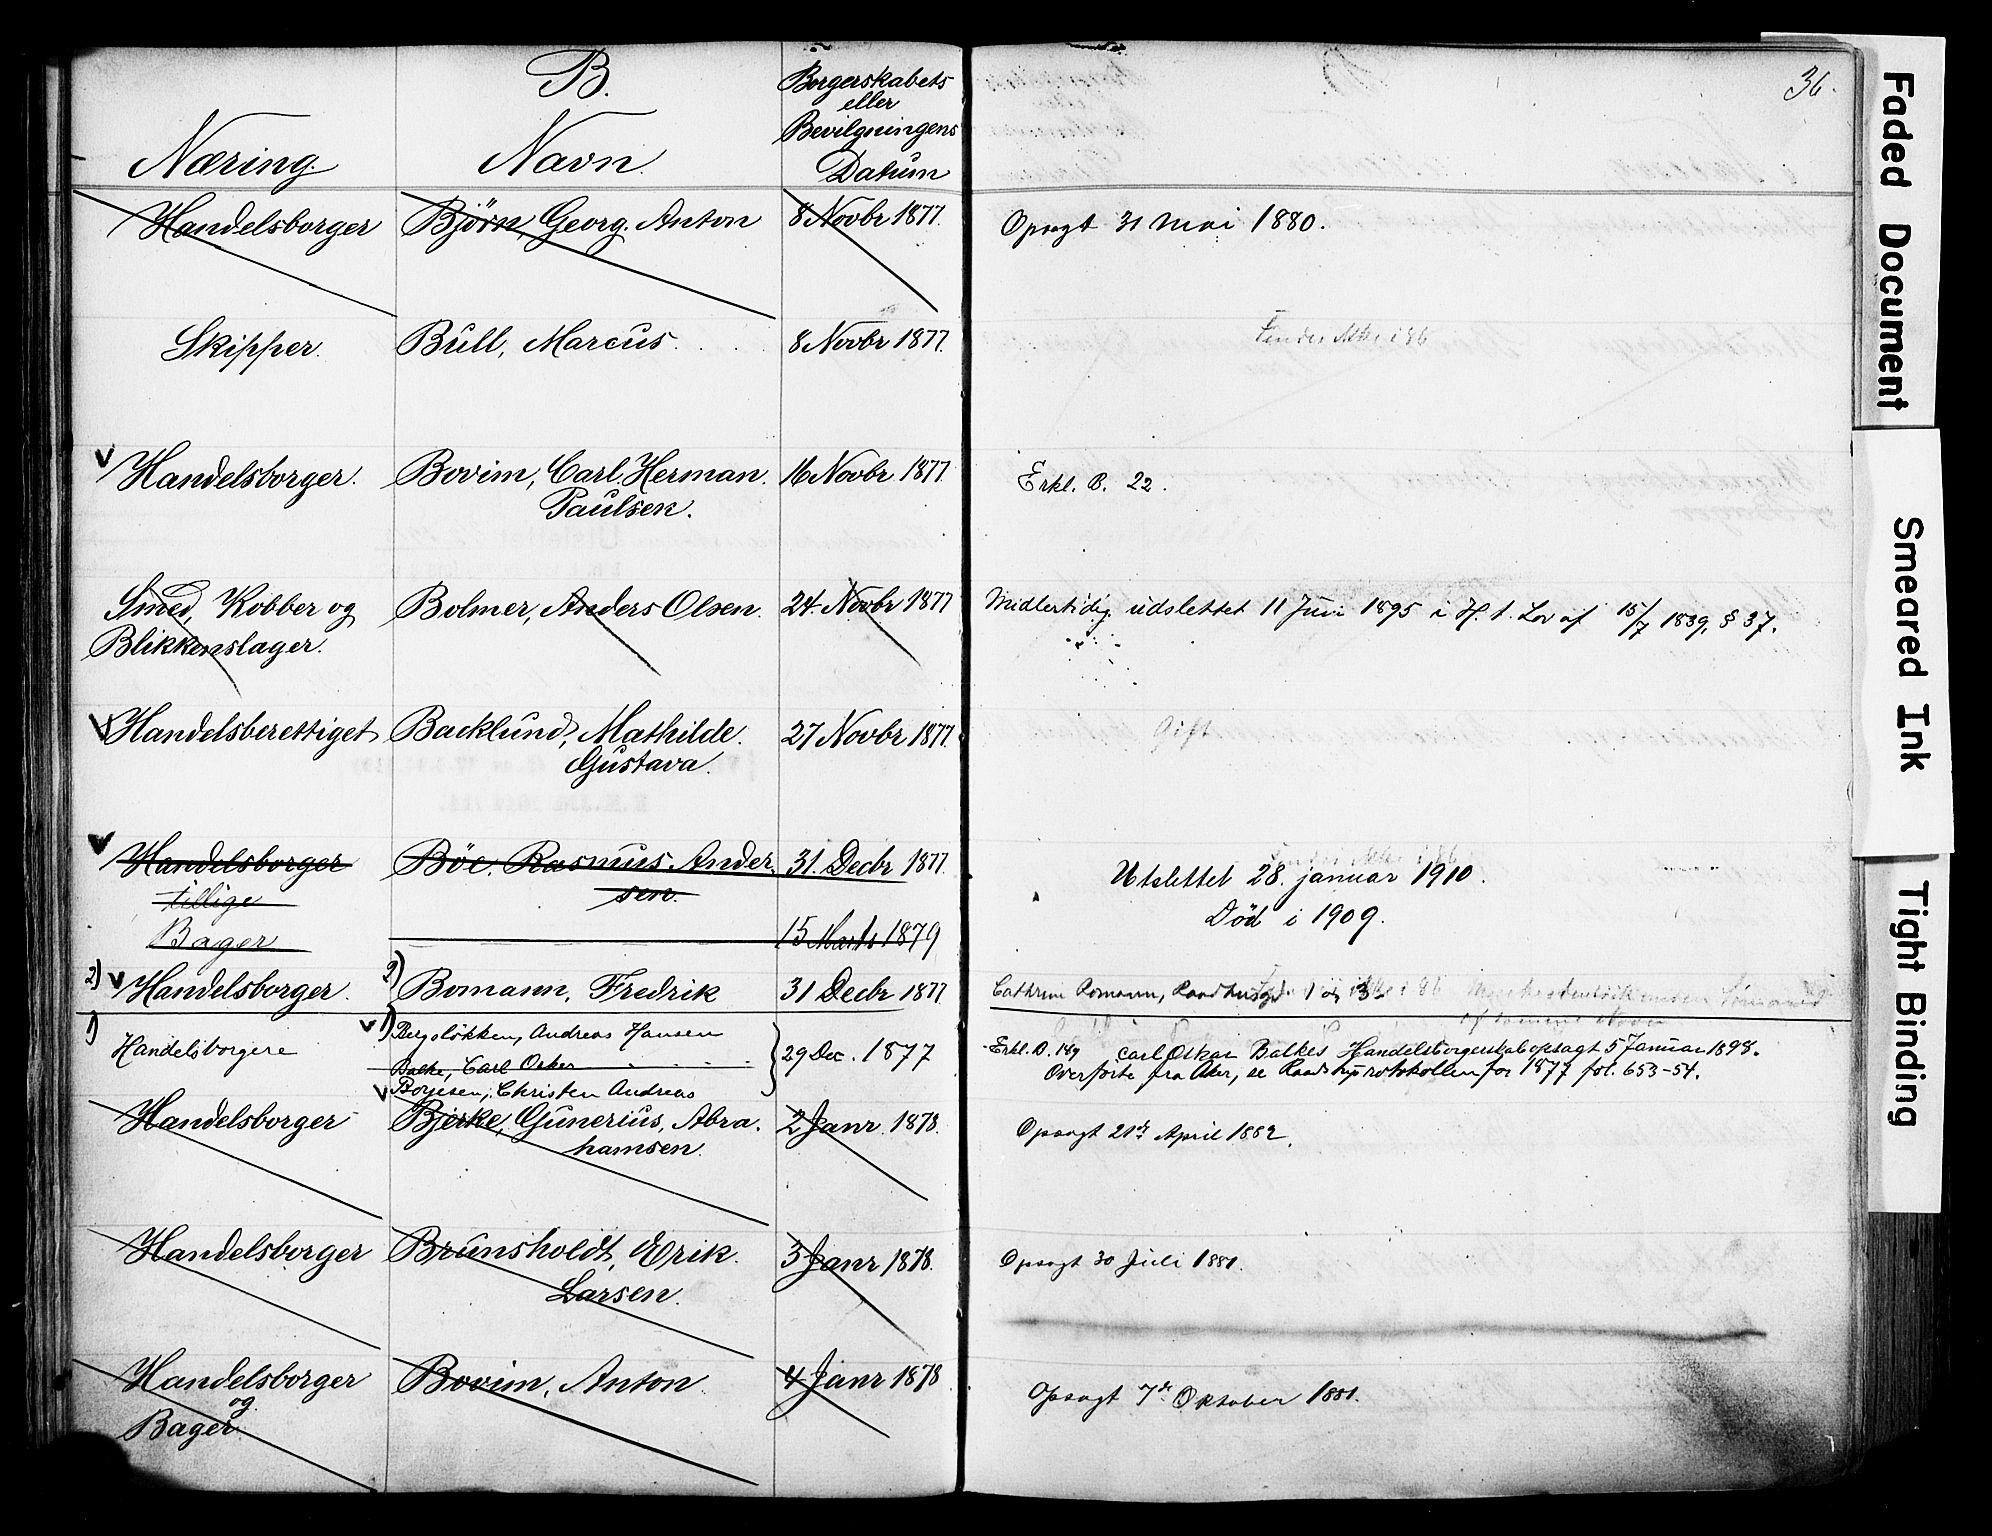 B.
Næring.
Navn.
Borgerskabets
eller
Bevilgningens
Datum
36.
Handelsborger
Björn, Georg. Anton
8 Novbr 1877.
Opsagt 31 Mai 1880.
Skipper.
Bull, Marcus.
8 Novbr 1877.
Findes ikke i 86
V Handelsborger.
Bovim, Carl Herman
Paulsen.
16 Novbr 1877
Erkl. B. 22.
Smed, Kobber og
Blikkenslager.
Bolmer, Anders Olsen.
24. Novbr 1877
Midlertidig udslettet 11 Juni 1895 i H. t. Lov af 15/7 1839, § 37.
V Handelsberettiget
Backlund, Mathilde
Gustava.
27 Novbr 1877.
Gift
V Handelsborger
tillige
Bager
Böe, Rasmus Ander
sen.
31. Decbr 1877.
15 Marts 1879
Utslettet 28. januar 1910.
Död i 1909.
2) V Handelsborger.
2) Bomann, Fredrik
31 Decbr 1877
Cathrine Bomann, Raadhusgd 1 og 3
1) Handelsborgere
V 1) Bergsløkken, Andreas Hansen
Balke, Carl Oskar
V Borgesen, Christen Andreas
29 Dec. 1877
Erkl. B. 189 Carl Oskar Balkes Handelsborgerskab opsagt 5 Januar 1898.
Overförte fra Aker, se Raadhusprotokollen for 1877 fol. 653-54.
Handelsborger
Bjerke, Gunerius, Abra
hamsen.
2 Janr. 1878.
Opsagt 21de April 1882.
Handelsborger
Brunsholdt, Erik
Larsen.
3 Janr 1878.
Opsagt 30 Juli 1881.
Handelsborger
og
Bager
Bovim, Anton
4 Janr 1878
Opsagt 7de Oktober 1881.
Faded Document
Smeared Ink
Tight Binding